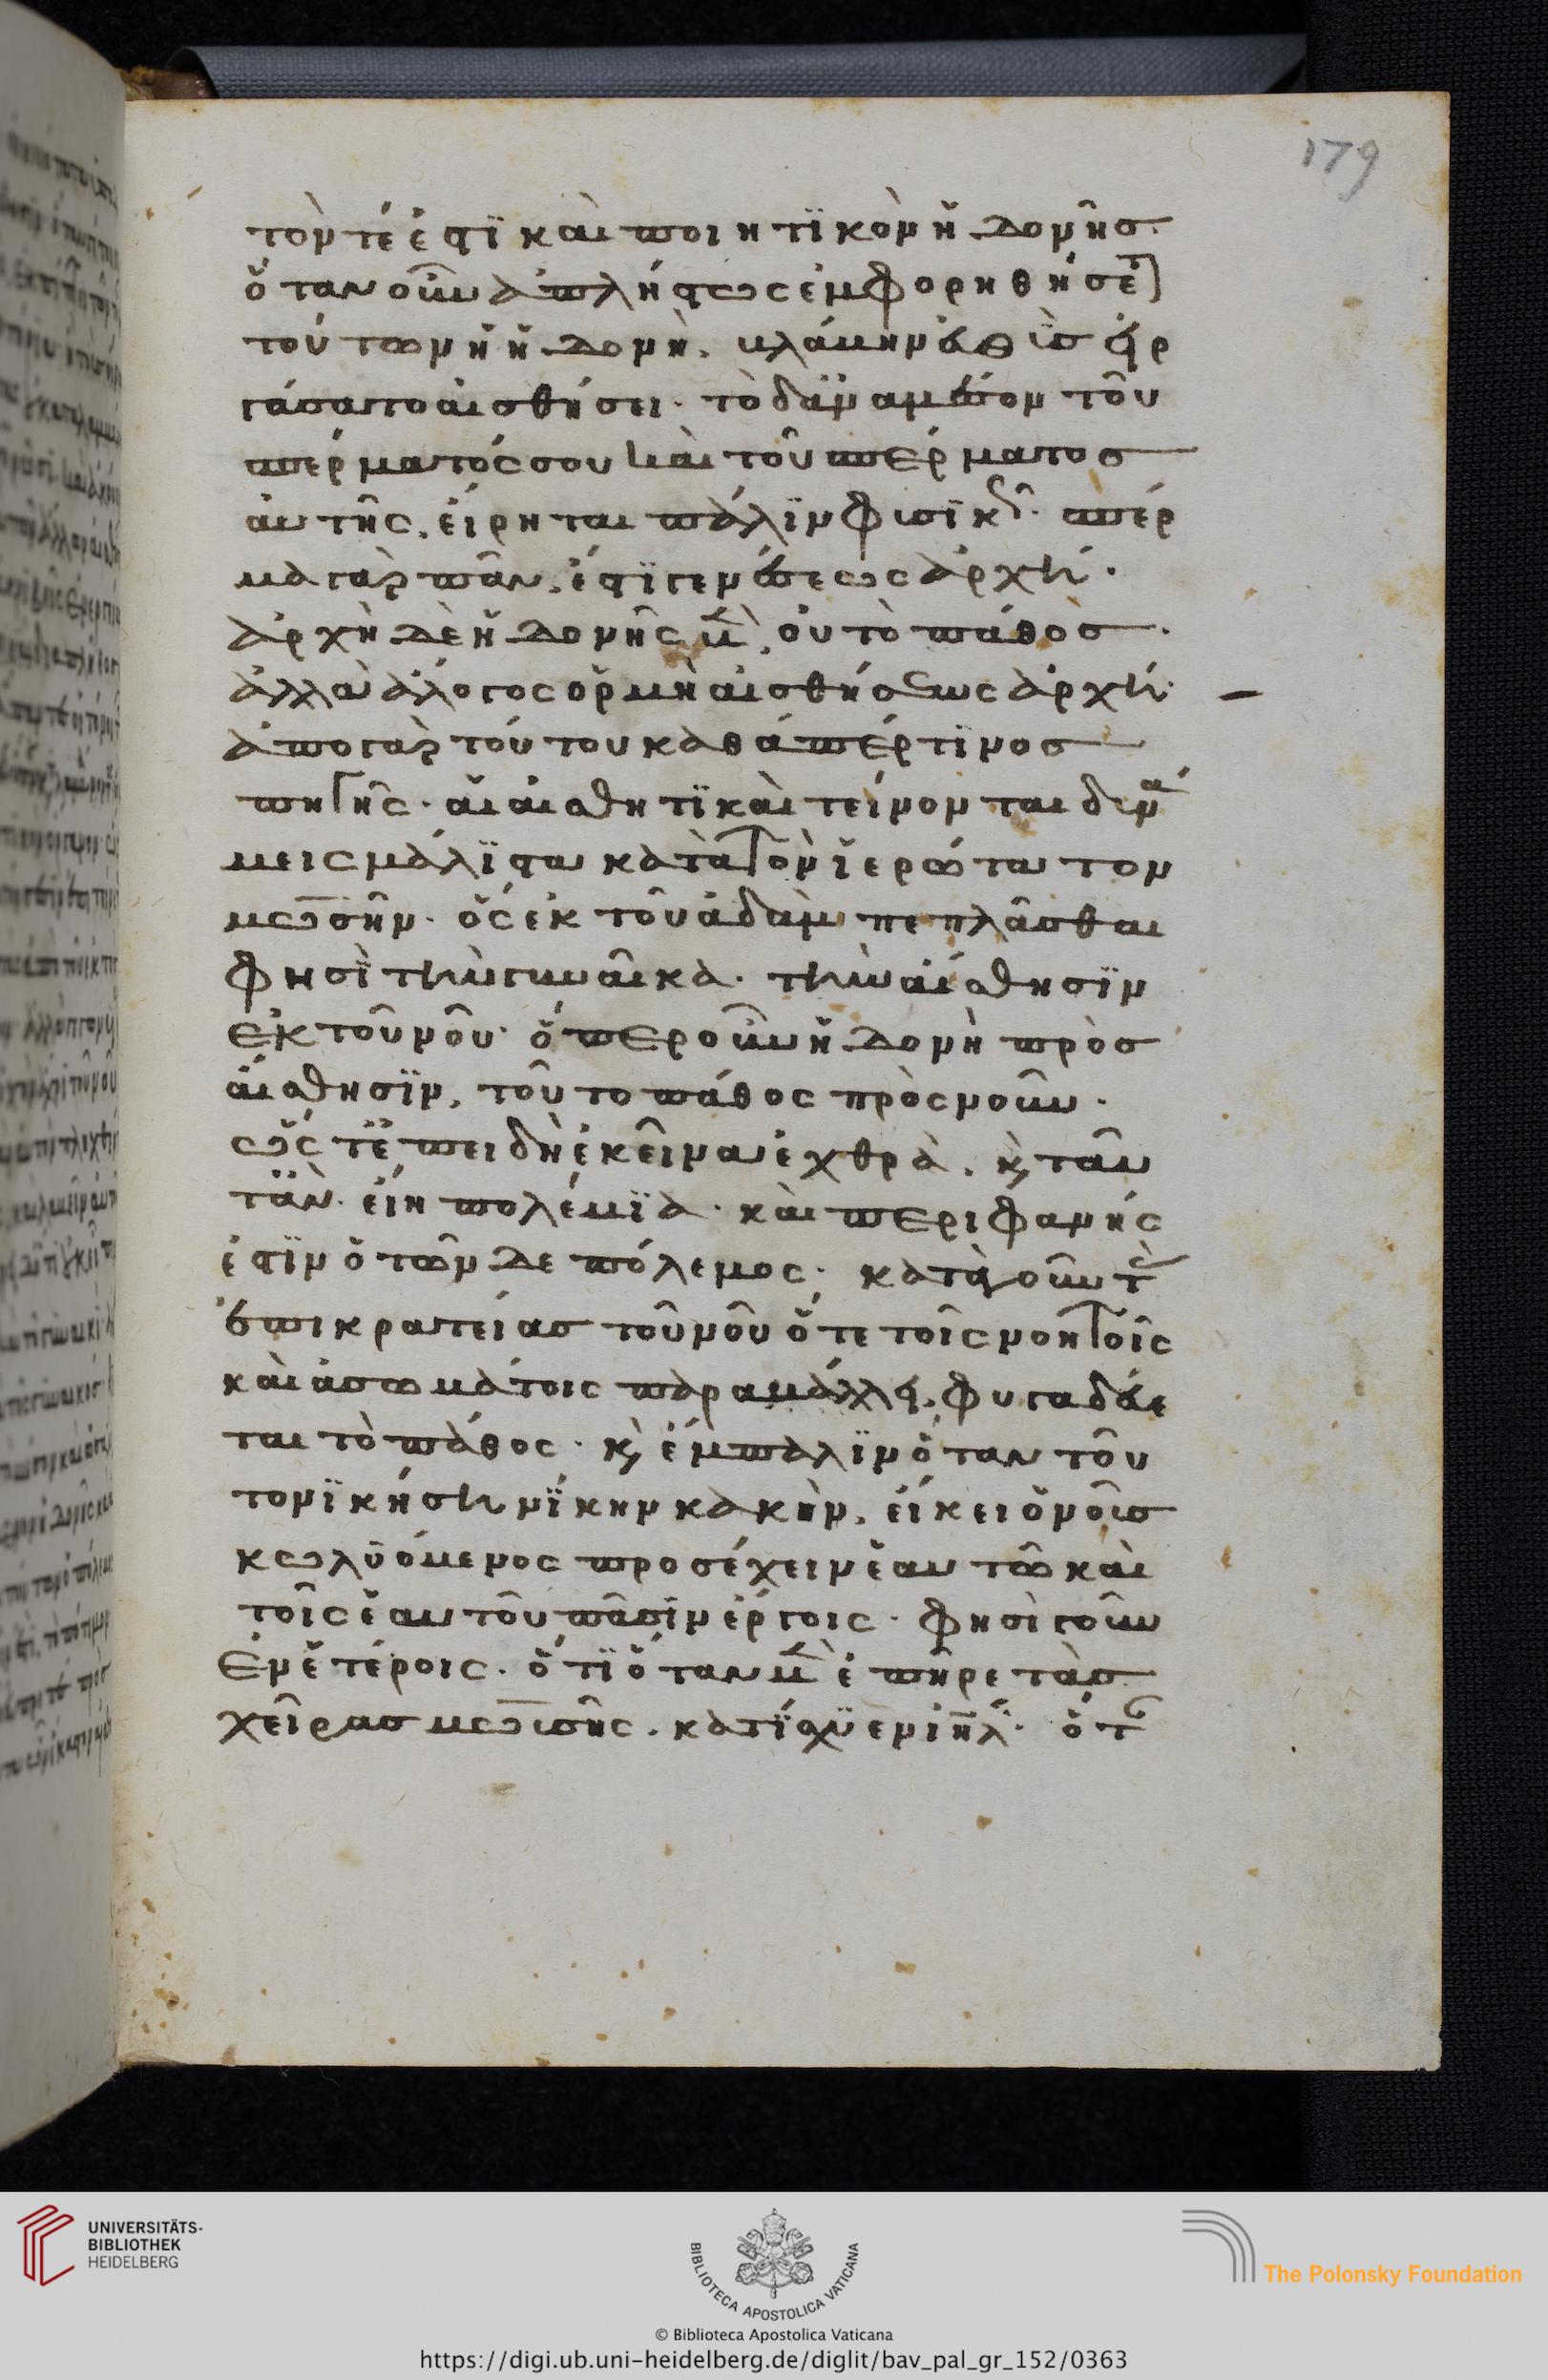 τόν τέ ἐστϊ καὶ ποιητϊκὸν ἡδονῆς·
ὅταν οὖν ἀπλήστως ἐμφορηθήσεται
τούτων ἡ ἡδονὴ, βλάβην εὐθὺς εἰρ
γάσατο αἰσθήσει· τὸ δὲ ἀνὰ μέσον τοῦ
σπέρματός σου καὶ τοῦ σπέρματος
αὐτῆς, εἴρηται πάλϊν φυσϊκῶς· σπέρ
μα γὰρ πᾶν, ἐστϊ γενέσεως ἀρχή·
ἀρχὴ δὲ ἡδονῆς μὲν, οὐ τὸ πάθος·
ἀλλὰ ἄλογος ὁρμὴ αἰσθήσεως ἀρχή·
ἀπο γὰρ τούτου καθάπέρ τϊνος
πηγῆς· αἱ αἰσθητϊκαὶ τείνονται δυνά
μεις μάλϊστα κατὰ τὸν ἱερώτατον
μωσῆν· ὃς ἐκ τοῦ ἀδὰμ πεπλᾶσθαι
φησϊ τὴν γυναῖκα· τὴν αἴσθησϊν
ἐκ τοῦ νοῦ· ὅπερ οὖν ἡδονὴ πρὸς
αἴσθησϊν, τοῦτο πάθος πρὸς νοῦν·
ὥς τε ἐπειδὴ ἐκεῖνα ἐχθρὰ, κ ταῦ
τ' ἂν· εἴη πολέμϊα· καὶ περιφανής
ἐστϊν ὁ τῶν δε πόλεμος· κατὰ γοῦν τὰς
ἐπικρατείας τοῦ νοῦ ὅτε τοῖς νοητοῖς
καὶ ἀσωμάτοις παραβάλλει, φυγαδεύε
ται τὸ πάθος· κ ἔμπαλϊν ὅταν τοῦ
το νϊκήσῃ νϊκην κακὴν, εἴκει ὁ νοῦς
κωλϋόμενος προσέχειν ἑαυτῶ καὶ
τοῖς ἑαυτοῦ πᾶσϊν ἔργοις· φησὶ γοῦν
ἐν ἑτέροις· ὅτϊ ὅταν μὲν ἐπῆρε τὰς
χεῖρας μωυσῆς. κατΐσχϋεν ἰηλ· ὅτε
179
UNIVERSITÄTS-
BIBLIOTHEK
HEIDELBERG
BIBLIOTECA APOSTOLICA VATICANA
The Polonsky Foundation
© Biblioteca Apostolica Vaticana
https://digi.ub.uni-heidelberg.de/diglit/bav_pal_gr_152/0363